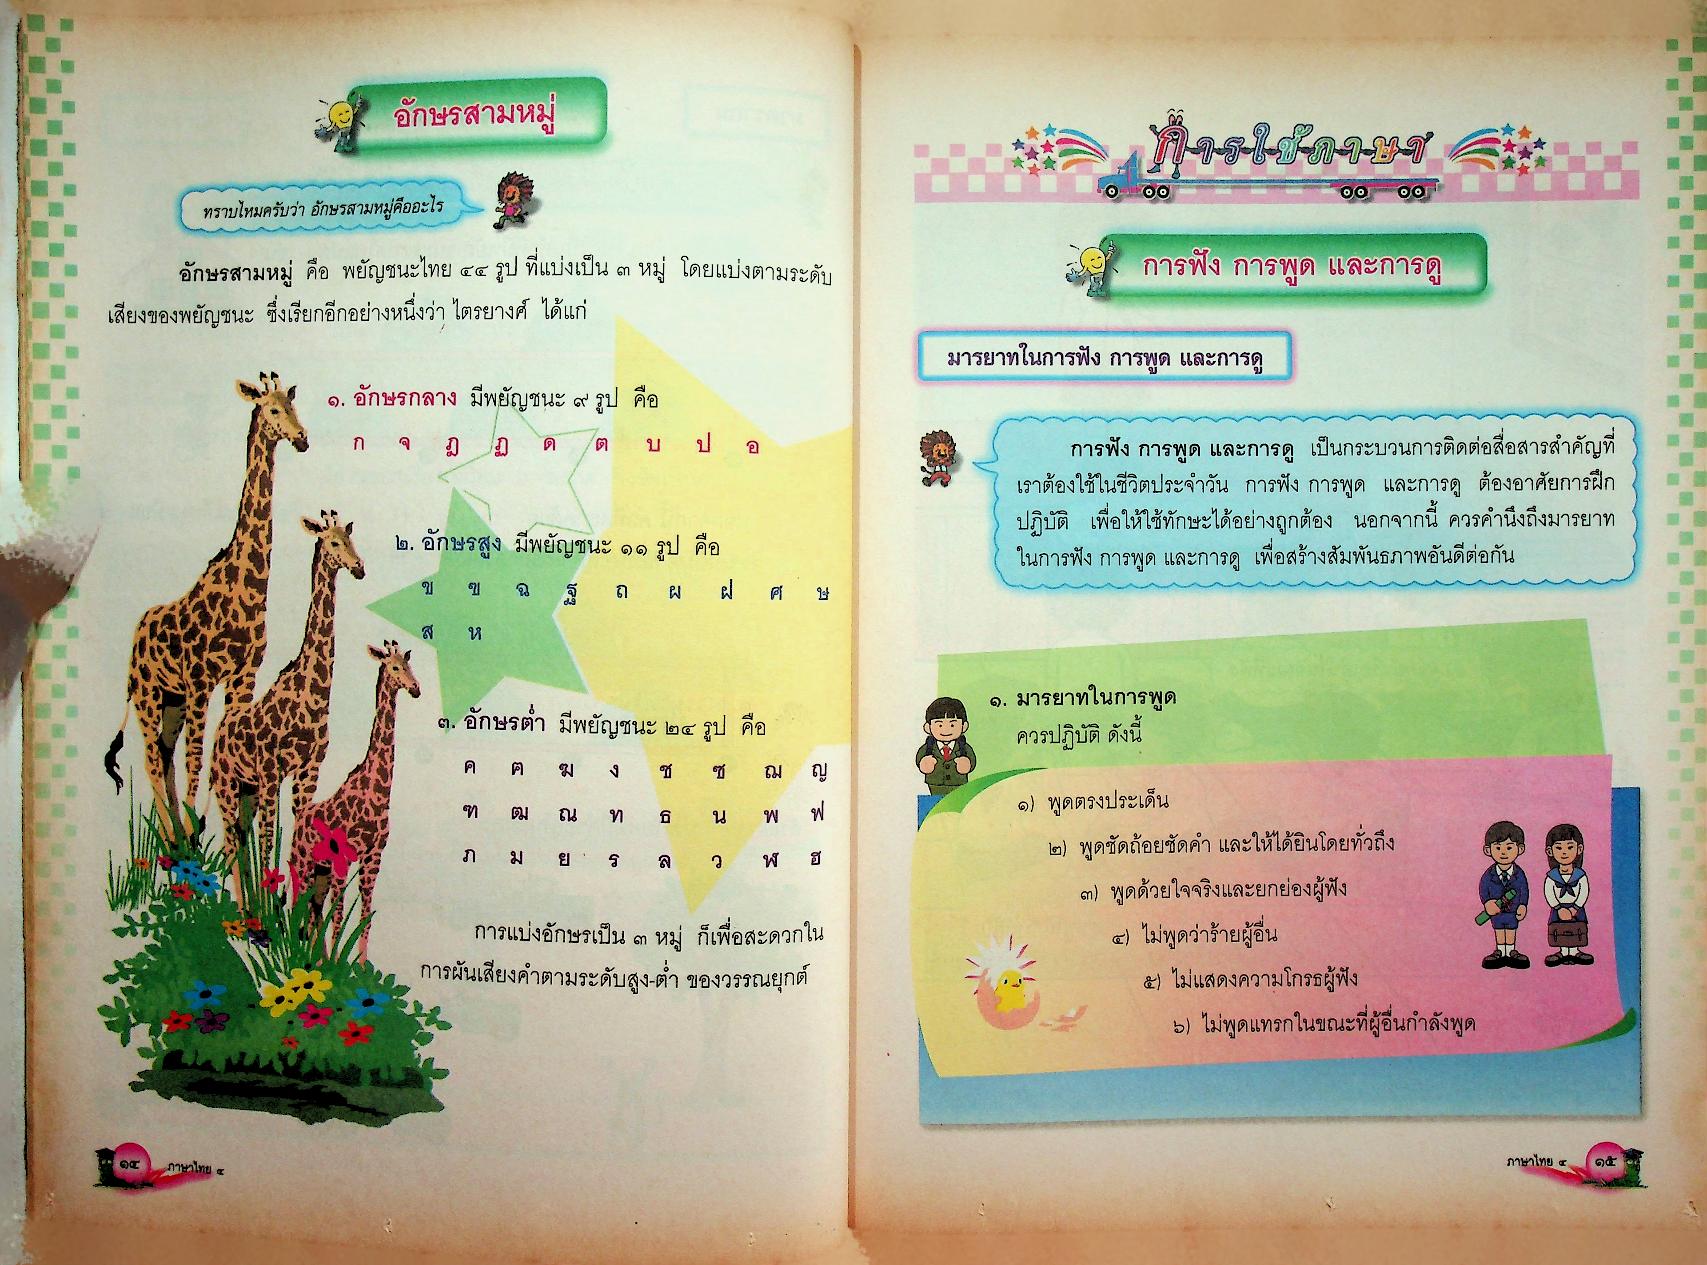 อักษรสามหมู่
ทราบไหมครับว่า อักษรสามหมู่คืออะไร
อักษรสามหมู่ คือ พยัญชนะไทย ๔๔ รูป ที่แบ่งเป็น ๓ หมู่ โดยแบ่งตามระดับ
เสียงของพยัญชนะ ซึ่งเรียกอีกอย่างหนึ่งว่า ไตรยางศ์ ได้แก่
๑. อักษรกลาง มีพยัญชนะ ๙ รูป คือ
ก จ ฎ ฏ ด ต บ ป อ
๒. อักษรสูง มีพยัญชนะ ๑๑ รูป คือ
ข ฃ ฉ ฐ ถ ผ ฝ ศ ษ
ส ห
๓. อักษรต่ำ มีพยัญชนะ ๒๔ รูป คือ
ค ฅ ฆ ง ช ซ ฌ ญ
ฑ ฒ ณ ท ธ น พ ฟ
ภ ม ย ร ล ว ฬ ฮ
การแบ่งอักษรเป็น ๓ หมู่ ก็เพื่อสะดวกใน
การผันเสียงคำตามระดับสูง-ต่ำ ของวรรณยุกต์
๑๔ ภาษาไทย ๔
การใช้ภาษา
การฟัง การพูด และการดู
มารยาทในการฟัง การพูด และการดู
การฟัง การพูด และการดู เป็นกระบวนการติดต่อสื่อสารสำคัญที่
เราต้องใช้ในชีวิตประจำวัน การฟัง การพูด และการดู ต้องอาศัยการฝึก
ปฏิบัติ เพื่อให้ใช้ทักษะได้อย่างถูกต้อง นอกจากนี้ ควรคำนึงถึงมารยาท
ในการฟัง การพูด และการดู เพื่อสร้างสัมพันธภาพอันดีต่อกัน
๑. มารยาทในการพูด
ควรปฏิบัติ ดังนี้
๑) พูดตรงประเด็น
๒) พูดชัดถ้อยชัดคำ และให้ได้ยินโดยทั่วถึง
๓) พูดด้วยใจจริงและยกย่องผู้ฟัง
๔) ไม่พูดว่าร้ายผู้อื่น
๕) ไม่แสดงความโกรธผู้ฟัง
๖) ไม่พูดแทรกในขณะที่ผู้อื่นกำลังพูด
ภาษาไทย ๔ ๑๕